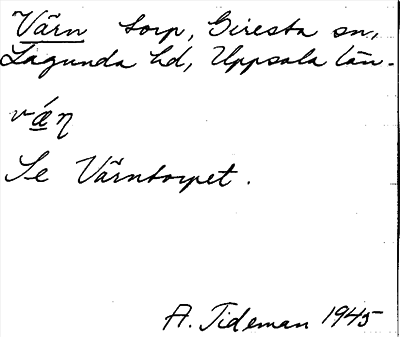 Värn torp, Giresta sn,
Lagunda hd, Uppsala län.
vǽ̱ɳ
Se Värntorpet.
A. Tideman 1945